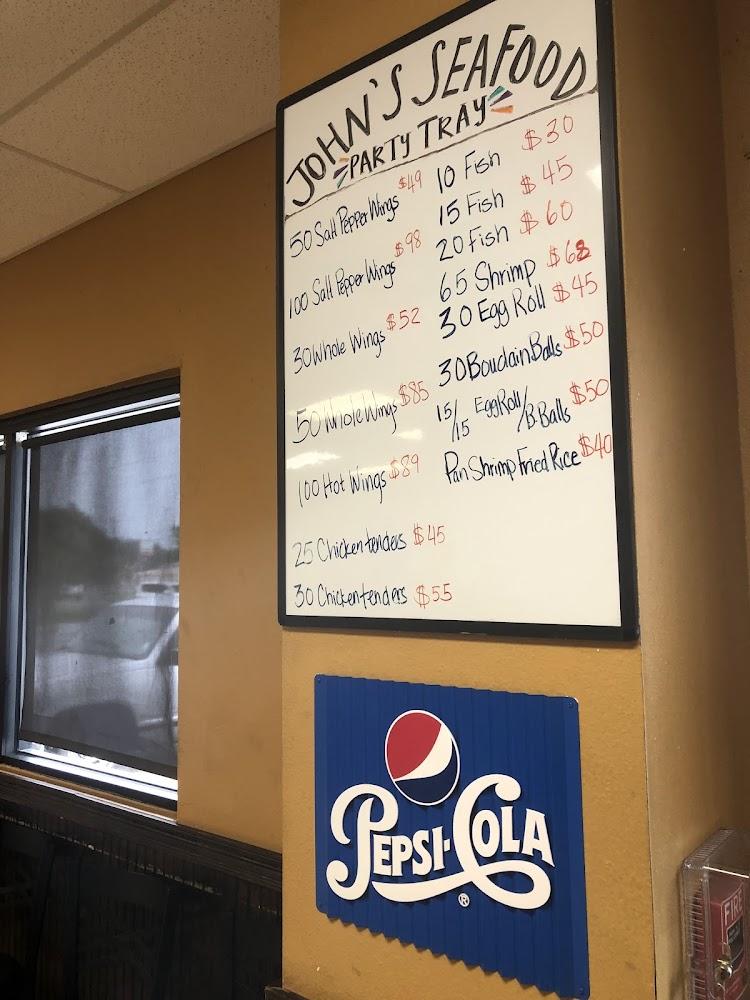 JOHN'S SEAFOOD
PARTY TRAY
50 Salt Pepper Wings $49
100 Salt Pepper Wings $98
30 Whole Wings $52
50 Whole Wings $85
100 Hot Wings $89
25 Chicken tenders $45
30 Chicken tenders $55
10 Fish $30
15 Fish $45
20 Fish $60
65 Shrimp $68
30 Egg Roll $45
30 Boudain Balls $50
15/15 Egg Roll/B. Balls $50
Pan Shrimp Fried Rice $40
PEPSI-COLA
®
FIRE